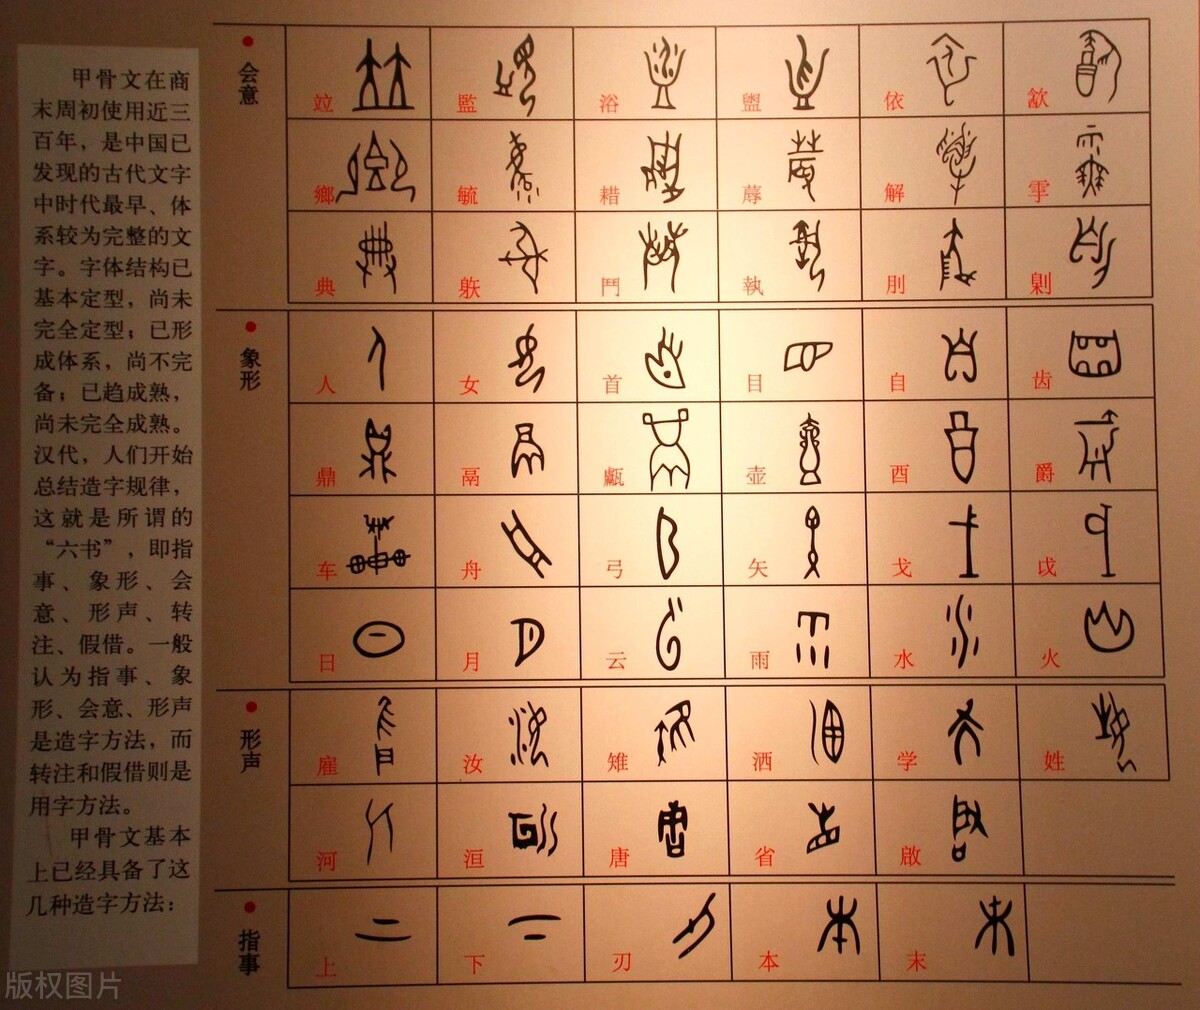 甲骨文在商
末周初使用近三
百年，是中国已
发现的古代文字
中时代最早、体
系较为完整的文
字。字体结构已
基本定型，尚未
完全定型；已形
成体系，尚不完
备；已趋成熟，
尚未完全成熟。
汉代，人们开始
总结造字规律，
这就是所谓的
“六书”，即指
事、象形、会
意、形声、转
注、假借。一般
认为指事、象
形、会意、形声
是造字方法，而
转注和假借则是
用字方法。
甲骨文基本
上已经具备了这
几种造字方法：
会意
竝 監 浴 盥 依 歙
鄉 毓 耤 蓐 解 霏
典 鬥 執 刖 劓
象形
人 女 首 目 自 齿
鼎 鬲 甗 壶 酉 爵
车 舟 弓 矢 戈 戉
日 月 云 雨 水 火
形声
雇 汝 雉 洒 学 姓
河 洹 唐 省 啟
指事
上 下 刃 本 末
版权图片